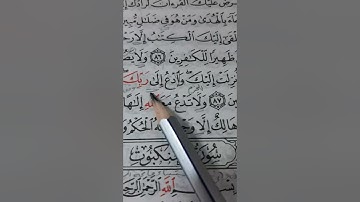 فرض عليك القرءان لرادك إ
جاء بالهدى ومن هو في ضلل مبين
يلقى إليك الكتب إلا رحـ
ظهيرا للكفرين ٨٦ ولا يصد
نزلت إليك وادع إلى ربك
ين ٨٧ ولا تدع مع الله إلها
هالك إلا وجهه له الحكم و
سورة العنكبوت
بسم الله الرحمن الرحيم